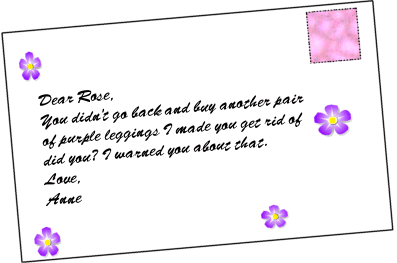 Dear Rose,
You didn't go back and buy another pair
of purple leggings I made you get rid of
did you? I warned you about that.
Love,
Anne